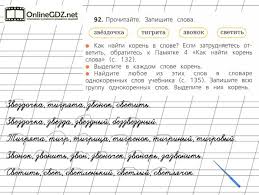 OnlineGDZ.net
92. Прочитайте. Запишите слова.
звёздочка тигрята звонок светить
Как найти корень в слове? Если затрудняетесь от-
ветить, обратитесь к Памятке 4 «Как найти корень
слова» (с. 132).
Выделите в каждом слове корень.
Найдите любое из этих слов в словаре
однокоренных слов учебника (с. 135). Запишите всю
группу однокоренных слов. Выделите в них корень.
Звёздочка, тигрята, звонок, светить.
Звёздочка, звезда, звёздный, беззвёздный.
Тигрята, тигр, тигрица, тигрёнок, тигриный, тигровый.
Звонок, звонить, звон, звоночек, звонарь, раззвонить.
Светить, свет, светленький, светлый, светлячок.